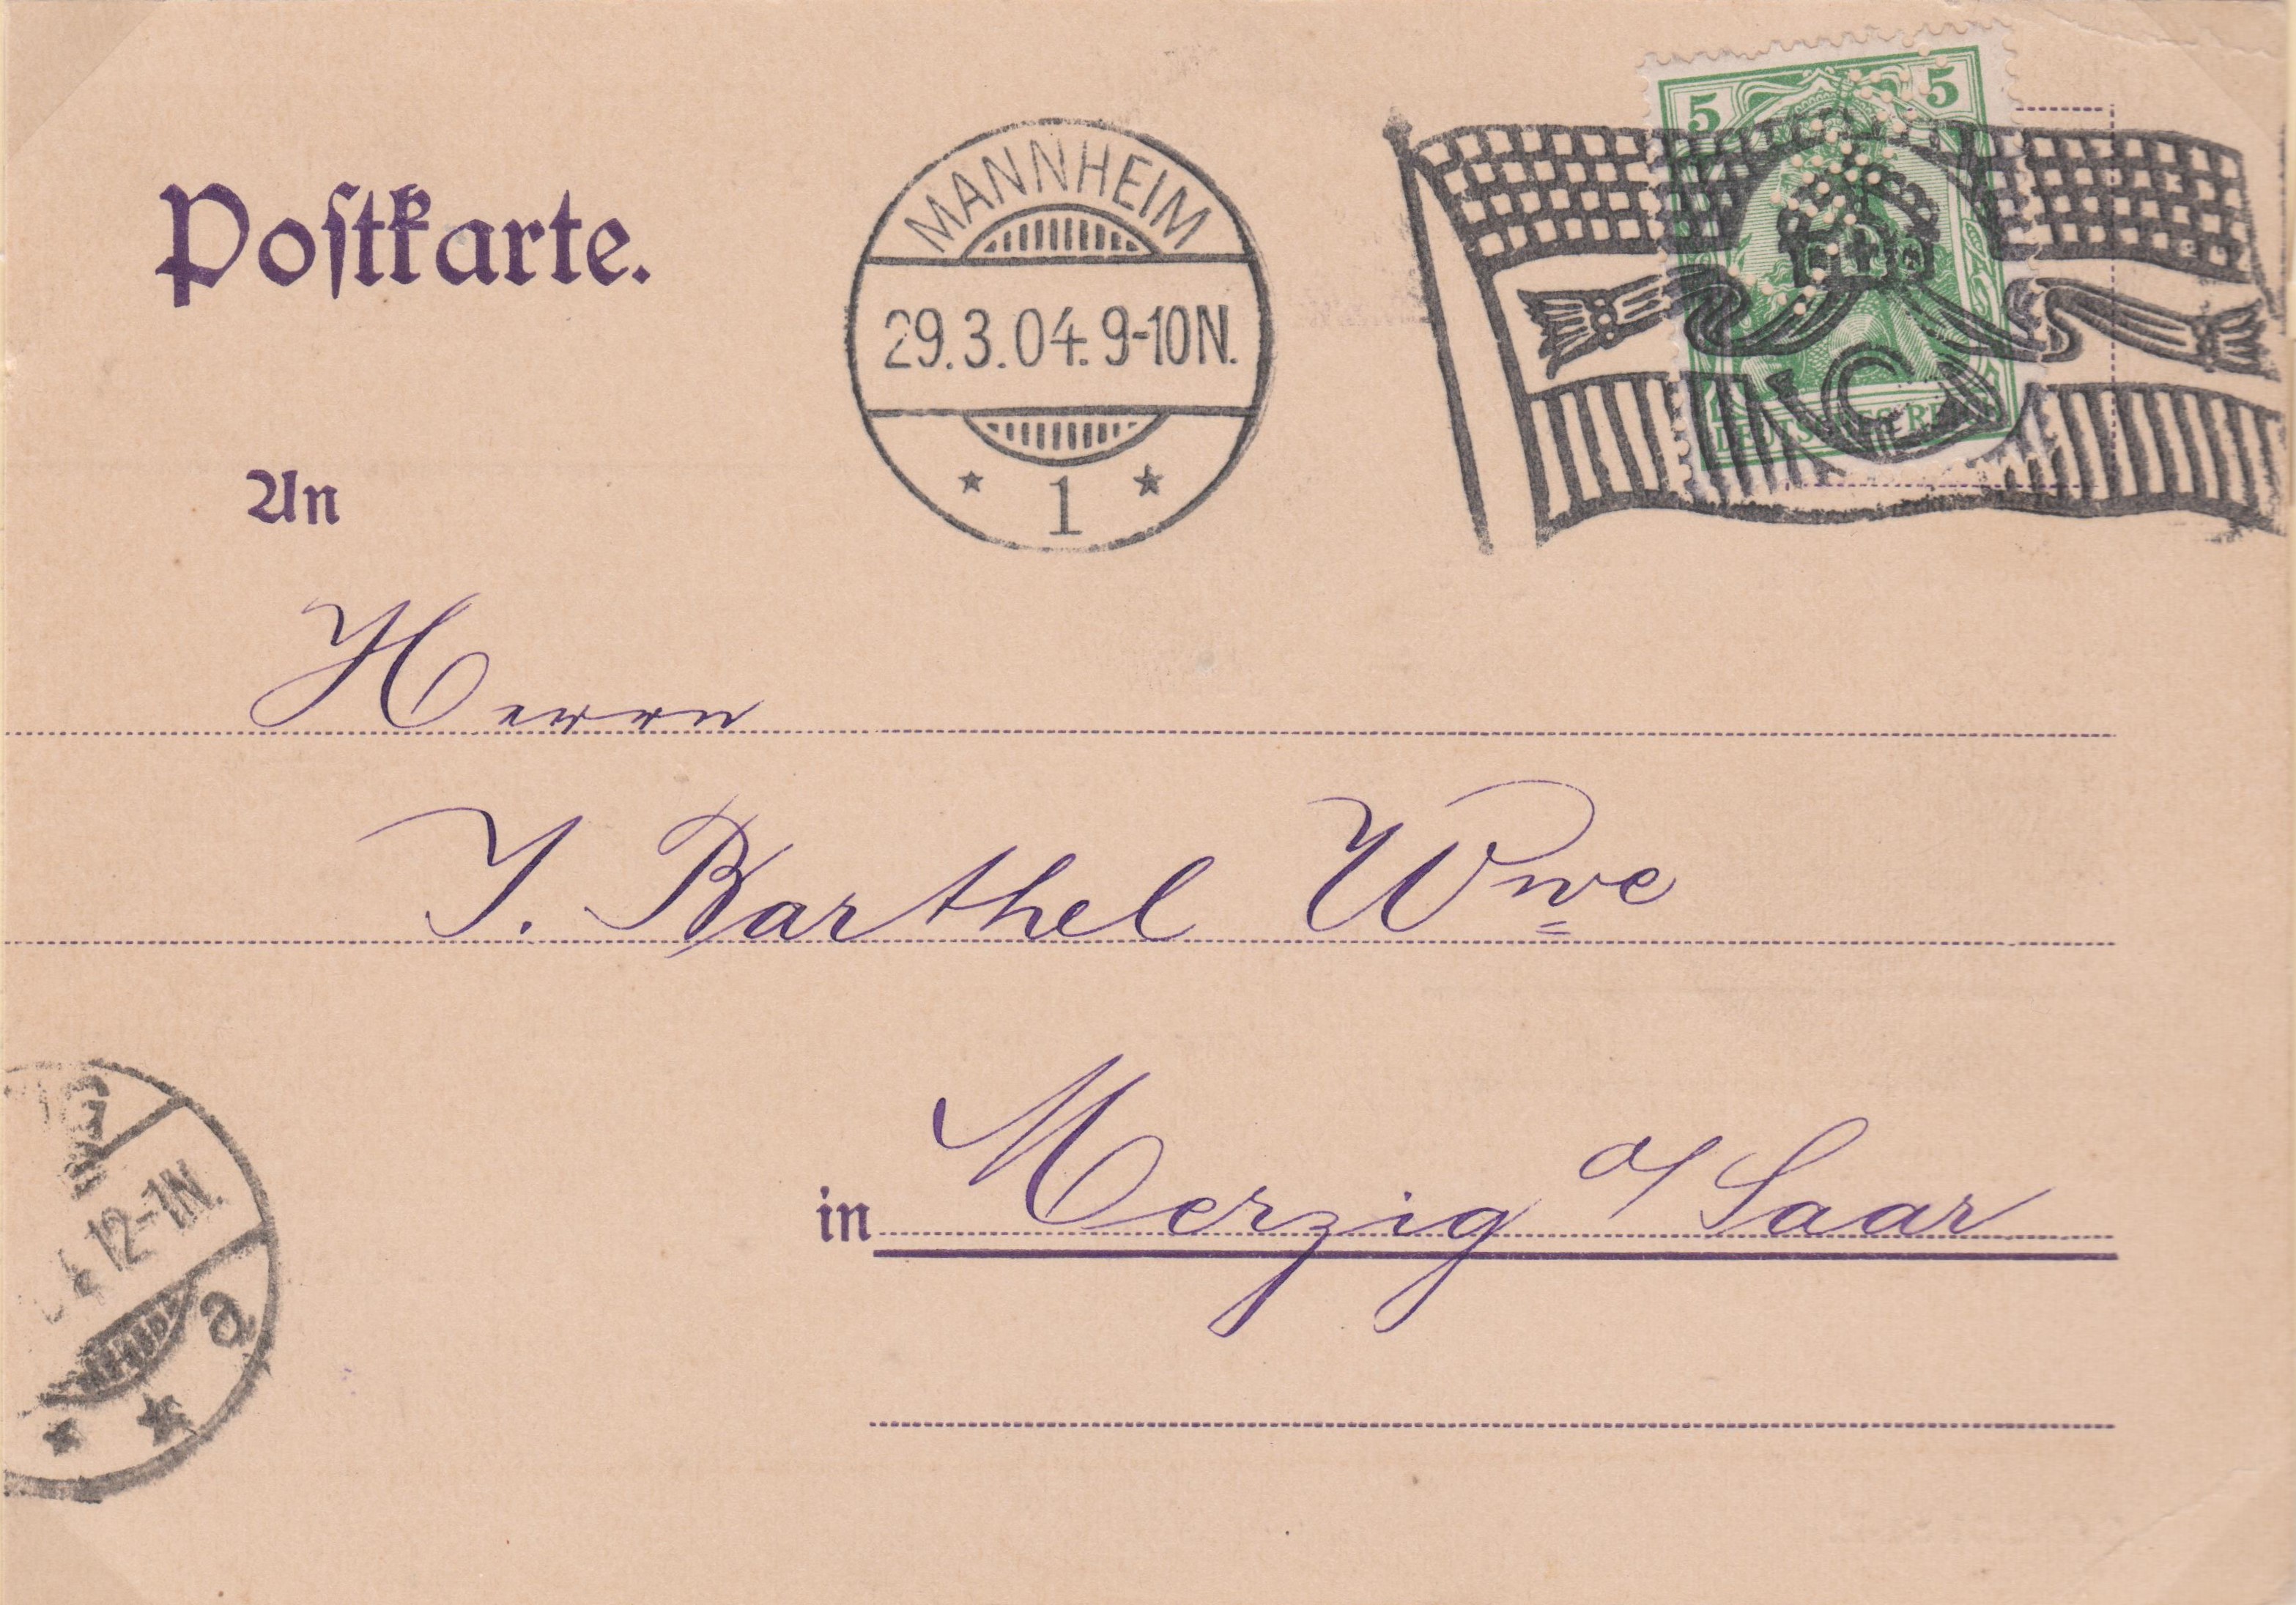 5 5
DEUTSCHES REICH
MANNHEIM
29.3.04. 9-10N.
* 1 *
Postkarte.
An
Herrn
J. Barthel Wwe
in Merzig a/Saar
12-1N.
a
* *